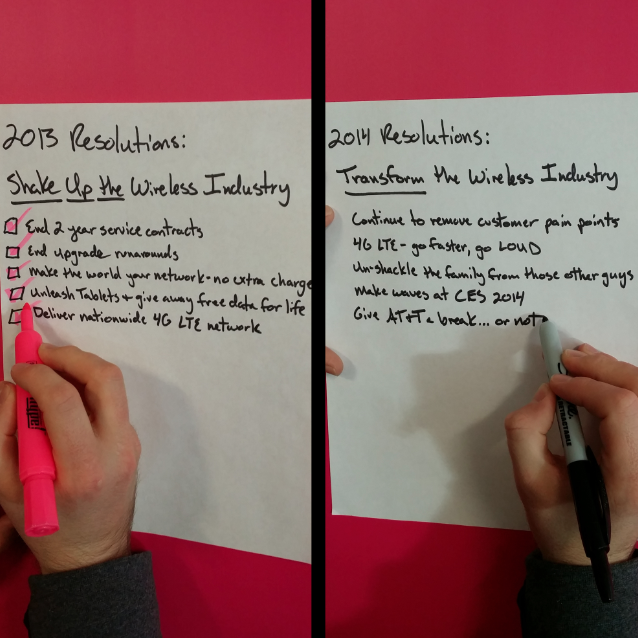 2013 Resolutions:
Shake Up the Wireless Industry
End 2 year service contracts
End upgrade runarounds
Make the world your network - no extra charge
Unleash Tablets + give away free data for life
Deliver nationwide 4G LTE network
2014 Resolutions:
Transform the Wireless Industry
Continue to remove customer pain points
4G LTE - go faster, go LOUD
Un-shackle the family from those other guys
Make waves at CES 2014
Give AT+T a break... or not